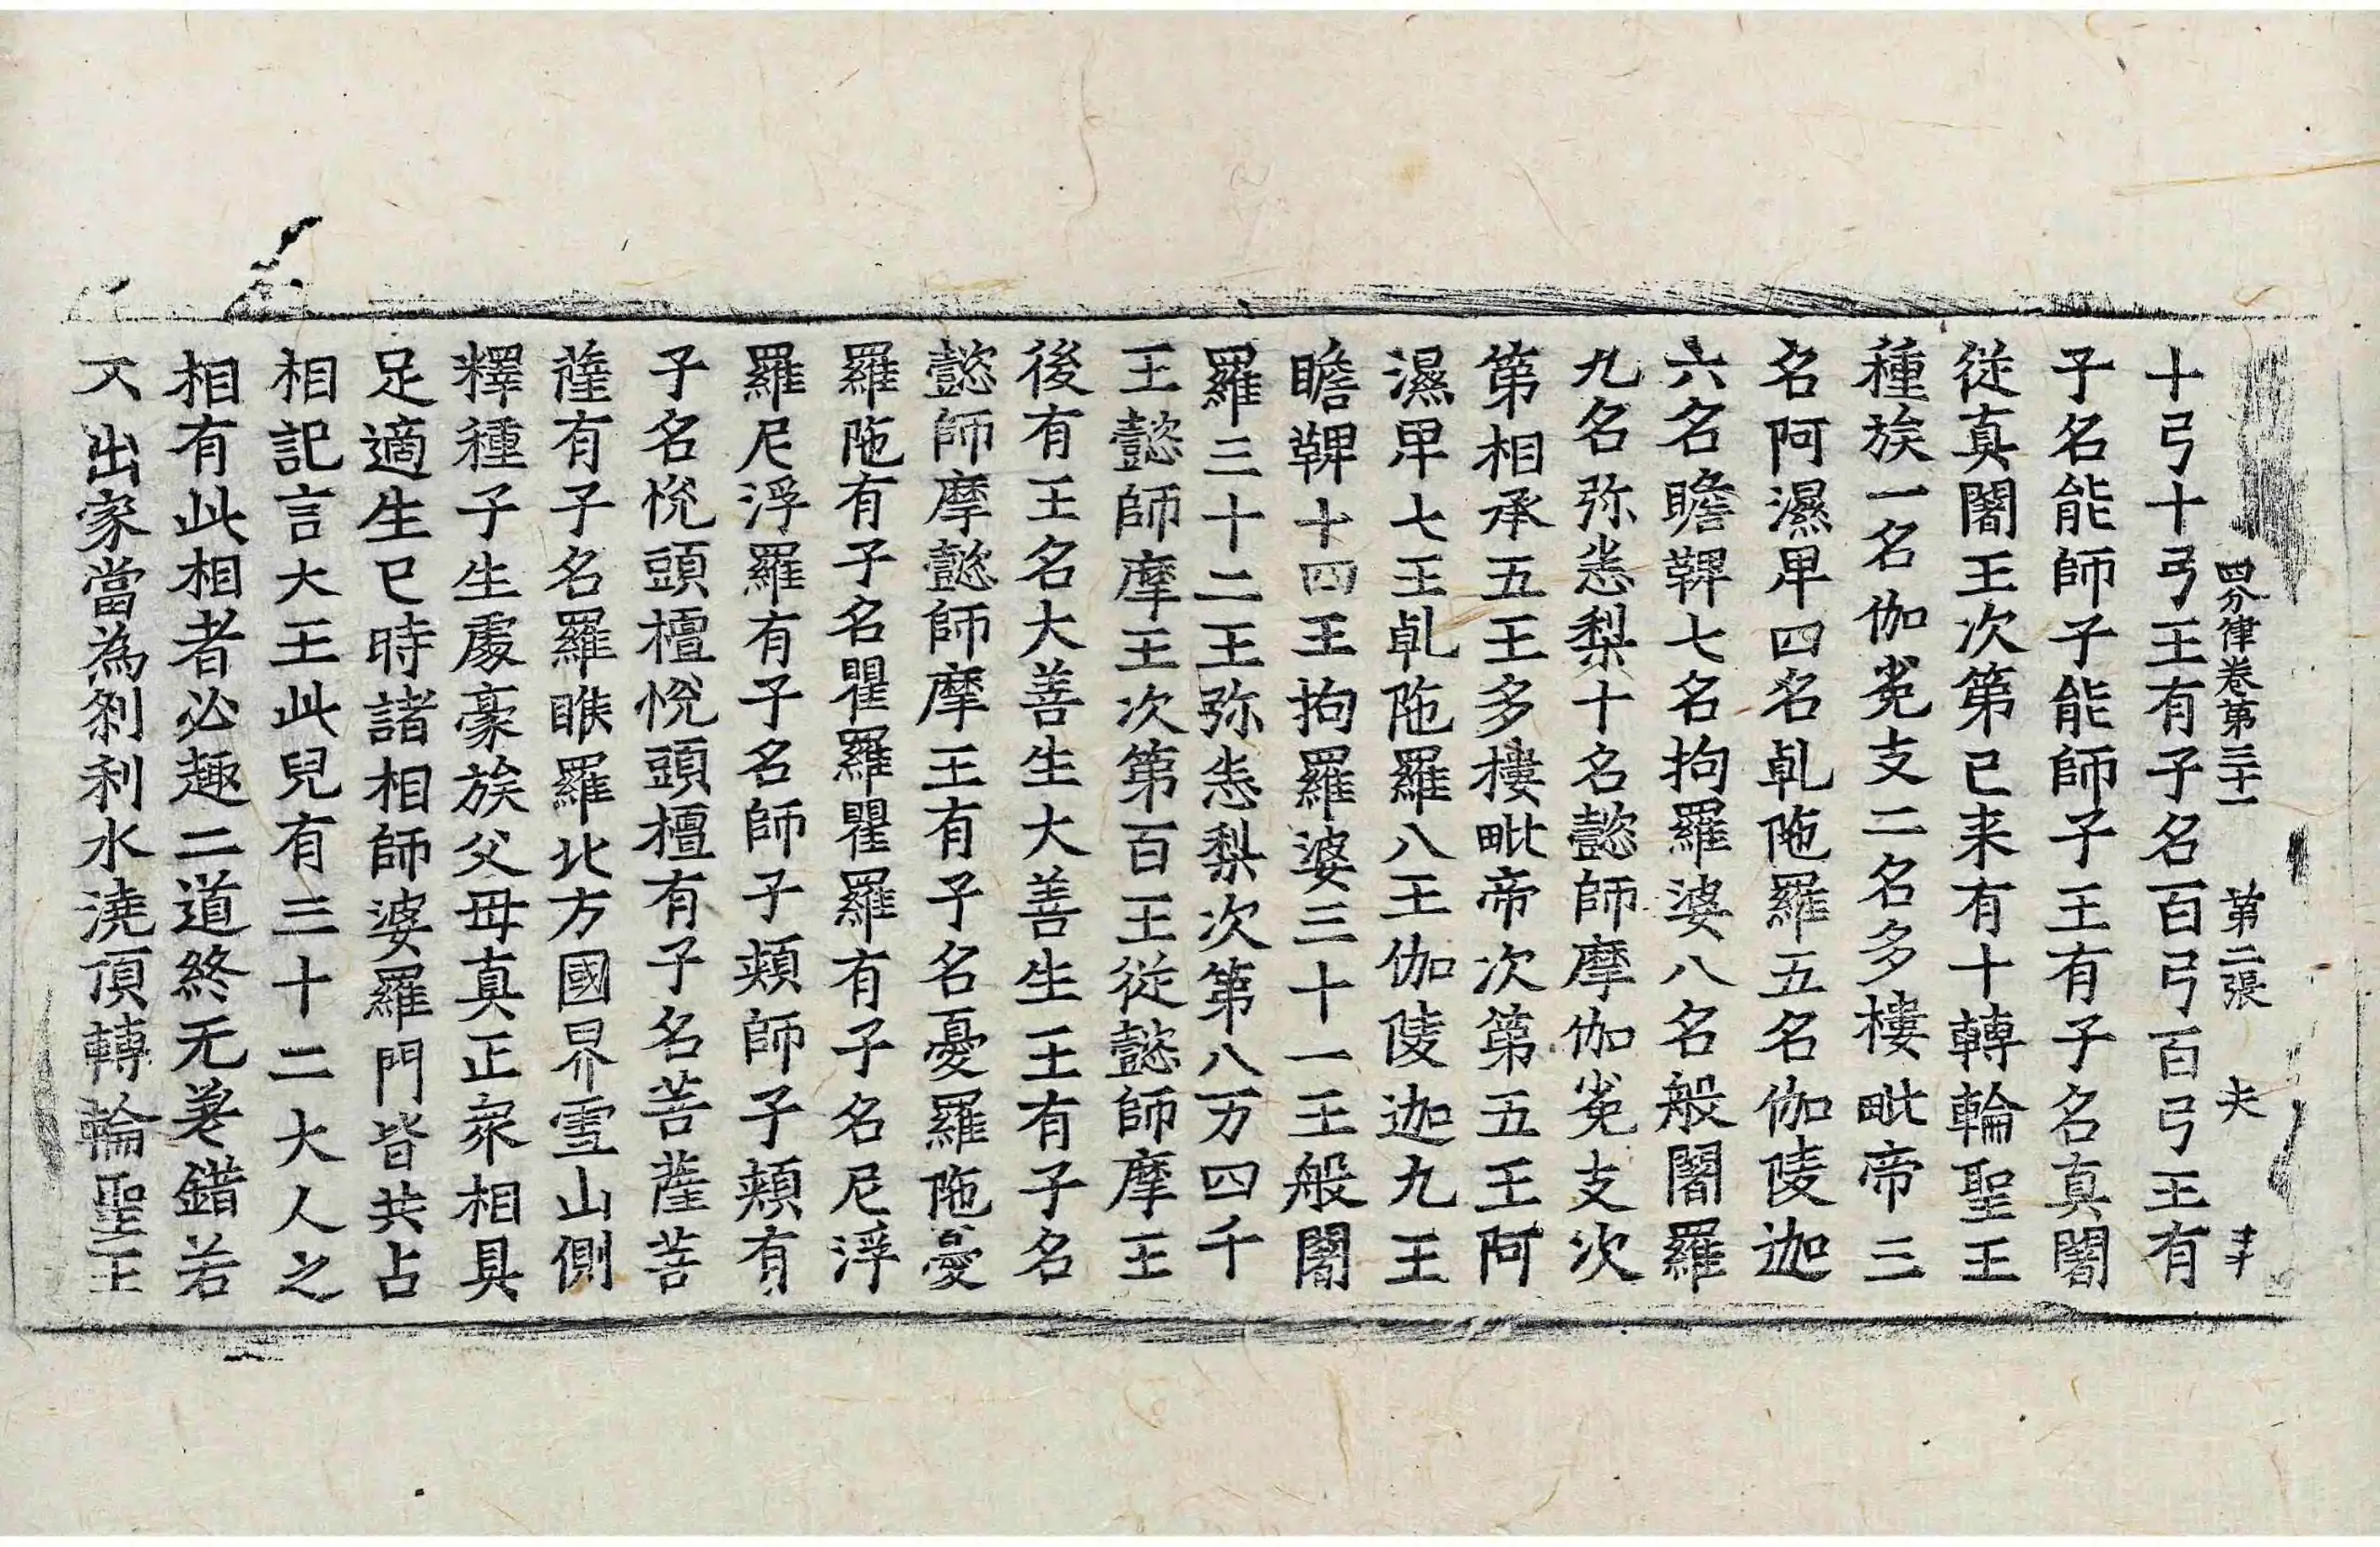 四分律卷第三十一 第二張 夫
十弓十弓王有子名百弓百弓王有
子名能師子能師子王有子名真闍
從真闍王次第已来有十轉輪聖王
種族一名伽㝹支二名多樓毗帝三
名阿濕卑四名乹陁羅五名伽陵迦
六名瞻鞞七名拘羅婆八名般闍羅
九名弥悉梨十名懿師摩伽㝹支次
第相承五王多樓毗帝次第五王阿
濕卑七王乹陁羅八王伽陵迦九王
瞻鞞十四王拘羅婆三十一王般闍
羅三十二王弥悉梨次第八万四千
王懿師摩王次第百王從懿師摩王
後有王名大善生大善生王有子名
懿師摩懿師摩王有子名憂羅陁憂
羅陁有子名瞿羅瞿羅有子名尼浮
羅尼浮羅有子名師子頰師子頰有
子名悅頭檀悅頭檀有子名菩薩菩
薩有子名羅睺羅北方國界雪山側
釋種子生處豪族父母真正衆相具
足適生已時諸相師婆羅門皆共占
相記言大王此兒有三十二大人之
相有此相者必趣二道終无差錯若
不出家當為剎利水澆頂轉輪聖王